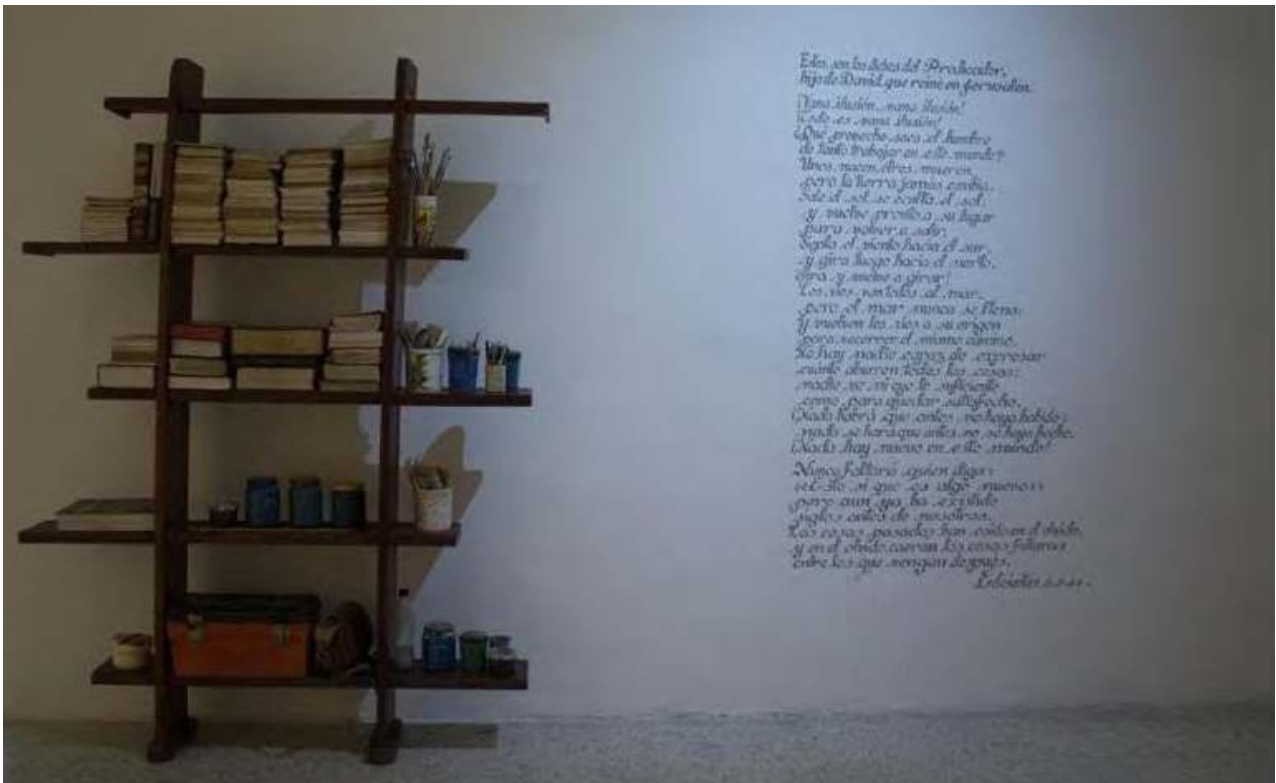 Estos son los dichos del Predicador,
hijo de David, que reinó en Jerusalén.
¡Vana ilusión, vana ilusión!
¡Todo es vana ilusión!
¿Qué provecho saca el hombre
de tanto trabajar en este mundo?
Unos nacen, otros mueren,
pero la tierra jamás cambia.
Sale el sol, se oculta el sol,
y vuelve pronto a su lugar
para volver a salir.
Sopla el viento hacia el sur,
y gira luego hacia el norte.
¡Gira y vuelve a girar!
Los ríos van todos al mar,
pero el mar nunca se llena;
y vuelven los ríos a su origen
para recorrer el mismo camino.
No hay nadie capaz de expresar
cuánto aburren todas las cosas;
nadie ve ni oye lo suficiente
como para quedar satisfecho.
Nada habrá que antes no haya habido;
nada se hará que antes no se haya hecho.
¡Nada hay nuevo en este mundo!
Nunca faltará quien diga:
«¡Esto sí que es algo nuevo!»
pero aun ya ha existido
siglos antes de nosotros.
Las cosas pasadas han caído en el olvido,
y en el olvido caerán las cosas futuras
entre los que vengan después.